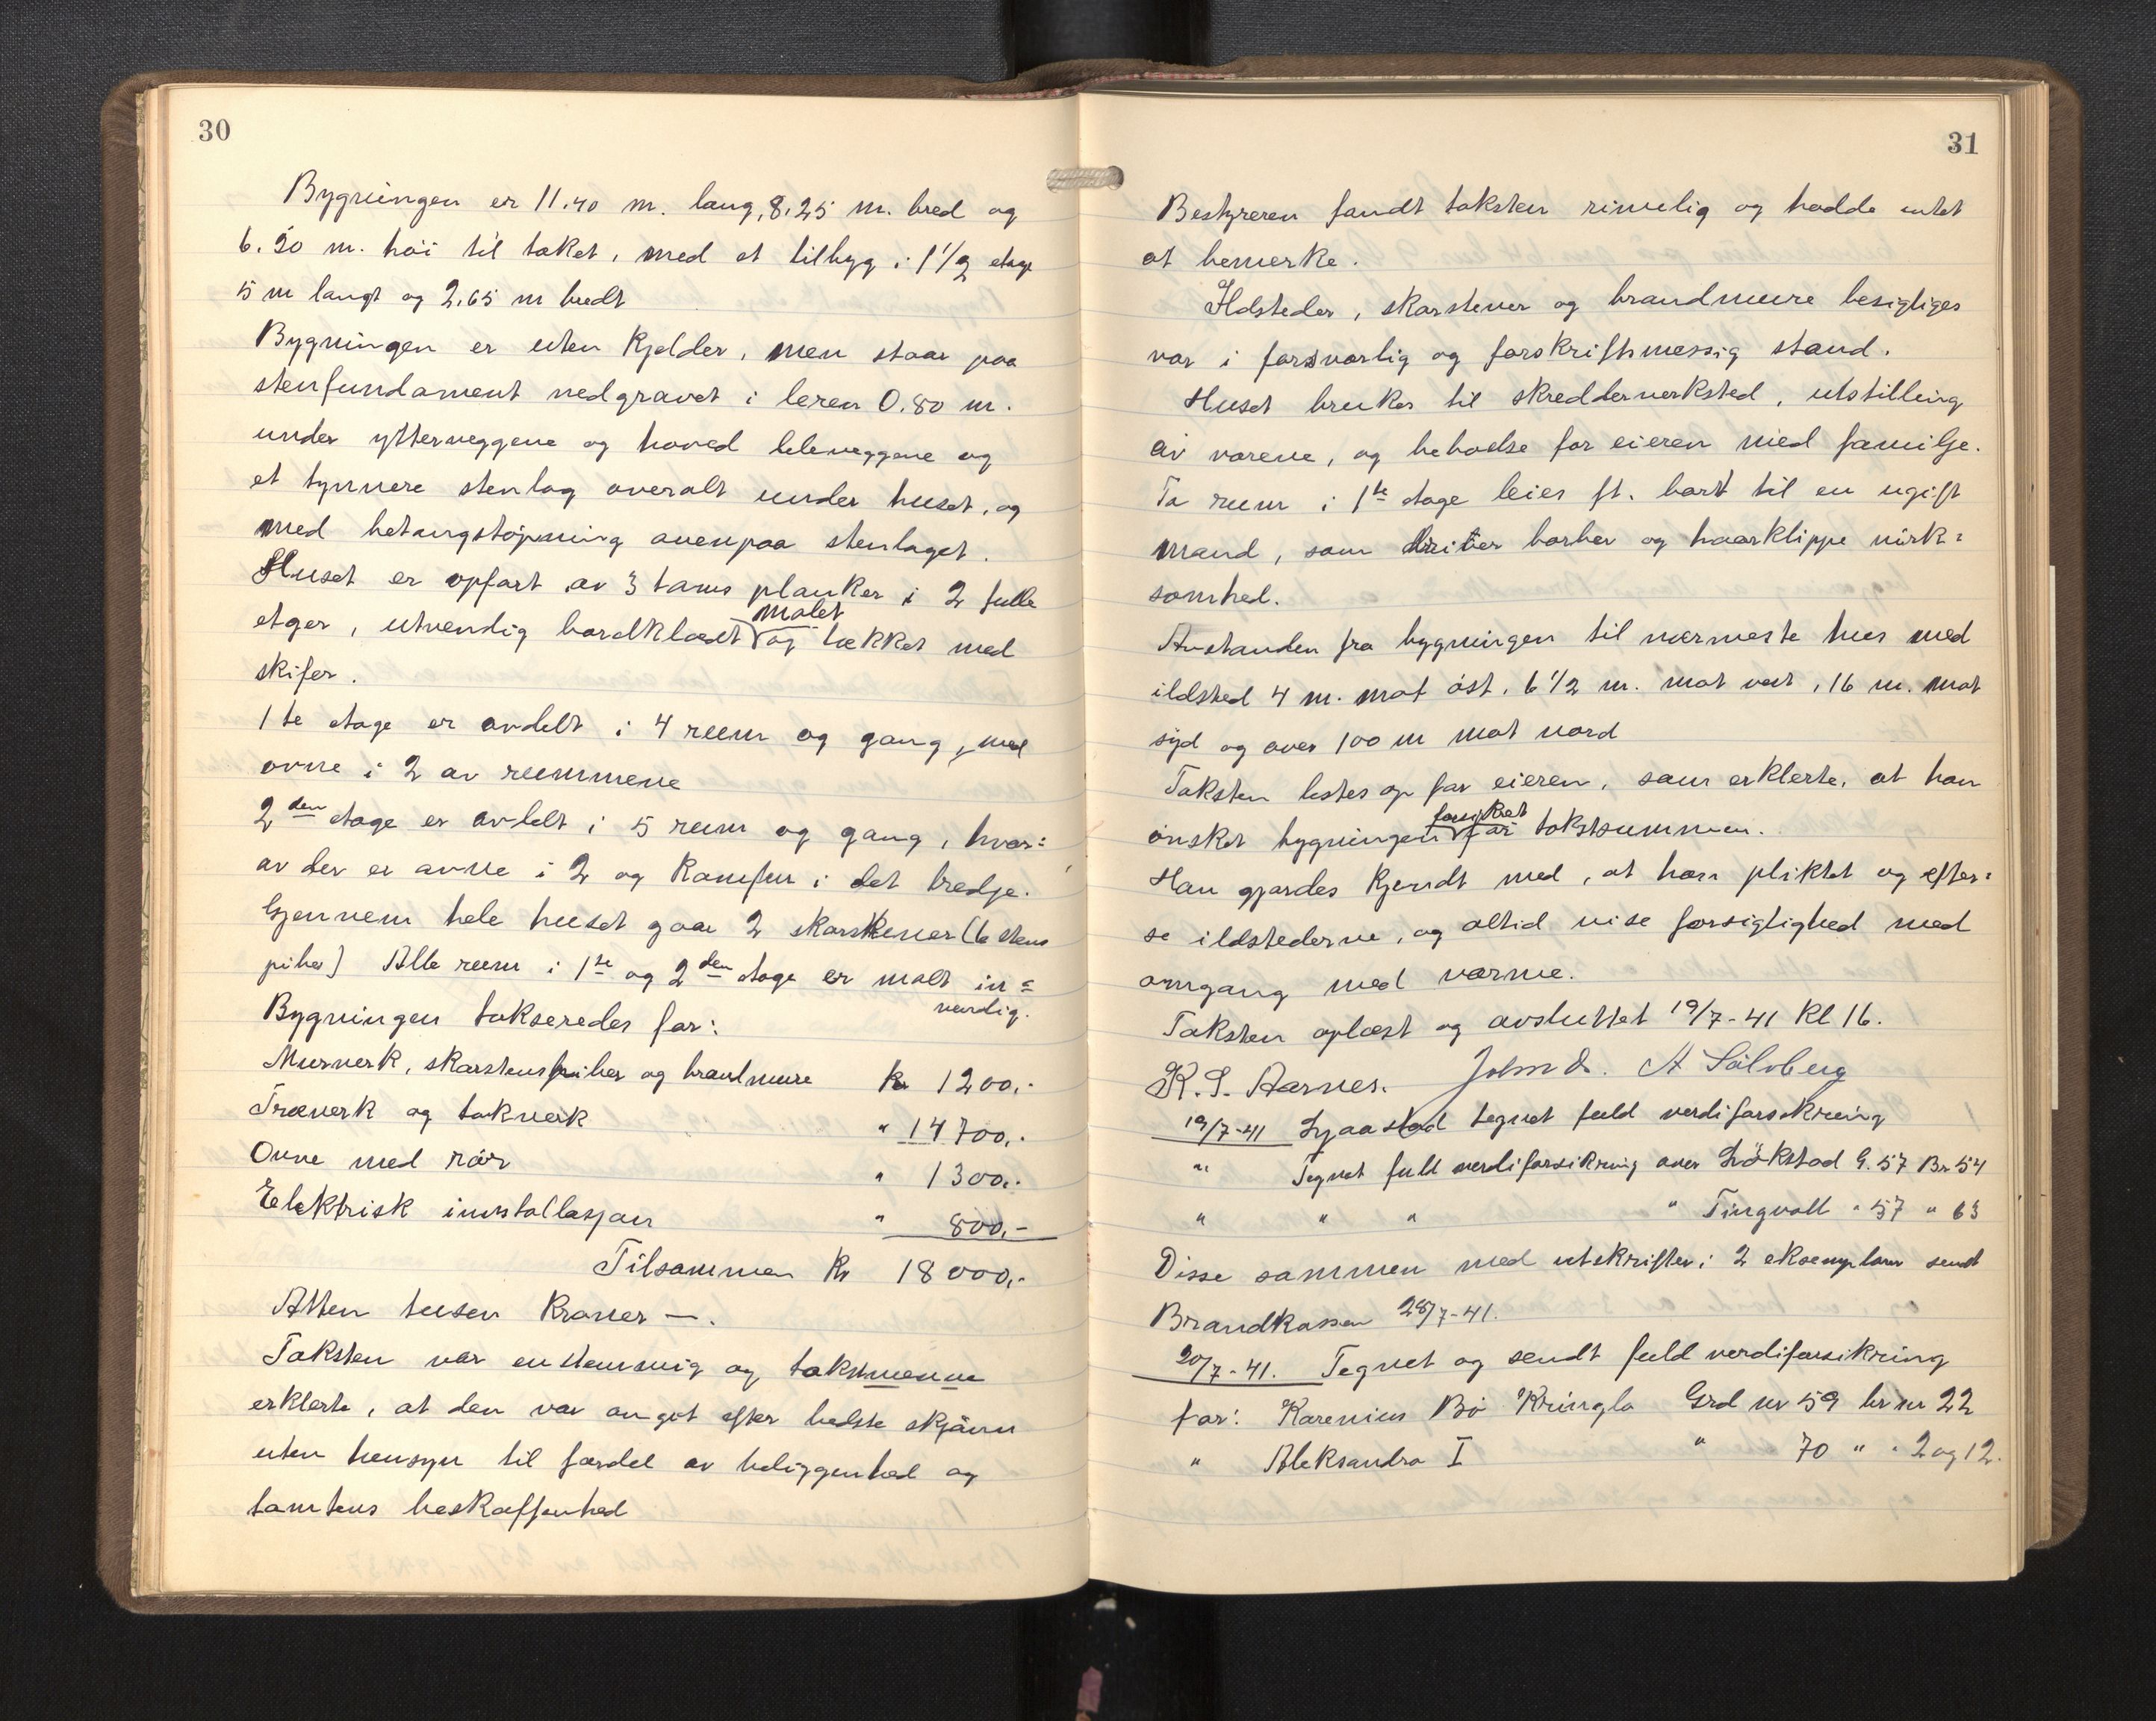 30
Bygningen er 11.40 m. lang, 8.25 m. bred og
6.50 m. höi til taket, med et tilbyg i 1 1/2 etage
5 m langt og 2.65 m bredt
Bygningen er uten Kjelder, men staar paa
stenfundament nedgravet i leren 0.80 m.
under ytterveggene og hoved deleveggene og
et tynnere stenlag overalt under huset, og
med betongstöpning ovenpaa stenlaget.
Huset er opfört av 3 toms planker i 2 fulle
etger, utvendig bordklædt malet og tækket med
skifer.
1 te etage er avdelt i 4 rum og gang, med
ovne i 2 av rummene
2 den etage er avdelt i 5 rum og gang, hvor=
av der er ovne i 2 og Komfur i det tredje.
Gjennem hele huset gaar 2 skorstener (6 stens
piber) Alle rum i 1 te og 2 den etage er malt in=
vendig.
Bygningen takseredes for:
Murverk, skorstenspiber og brandmure Kr 1200,-
Træverk og takverk " 14700,-
Ovne med rör " 1300,-
Elektrisk innstallasjon " 800,-
Tilsammen Kr 18000,-
Atten tusen Kroner —.
Taksten var enstemmig og takstmenne
erklerte, at den var angit efter bedste skjönn
uten hensyn til fordel av beliggenhed og
tomtens beskaffenhed
31
Bestyreren fandt taksten rimelig og hadde intet
at bemerke.
Ildsteder, skorstener og brandmure besigtiges
var i forsvarlig og forskriftsmessig stand.
Huset brukes til skredderverksted, utstilling
av varene, og beboelse for eieren med familje.
To rum i 1 te etage leies ft. bort til en ugift
mand, som driver barber og haarklippe virk=
somhed.
Avstanden fra bygningen til nærmeste hus med
ildsted 4 m. mot öst, 6 1/2 m. mot vest, 16 m. mot
syd og over 100 m mot nord
Taksten lestes op for eieren, som erklerte, at han
önsket bygningen forsikret for takstsummen.
Han gjördes kjendt med, at han pliktet og efter=
se ildstederne, og altid vise forsigtighed med
omgang med varme.
Taksten oplæst og avsluttet 19/7-41 Kl 16.
K. S. Aarnes. A Sölvberg
19/7-41 tegnet fuld verdiforsikring
" Tegnet full verdiforsikring over Lökstad G. 57 Br 54
" " " " Tingvoll " 57 " 63
Disse sammen med utskrifter i 2 eksemplarer sendt
Brandkassen 28/7-41.
20/7-41. Tegnet og sendt fuld verdiforsikring
for: Karenius Bö Kringla Grd nr 59 br nr 22
" Aleksandra I " 70 " " 2 og 12.